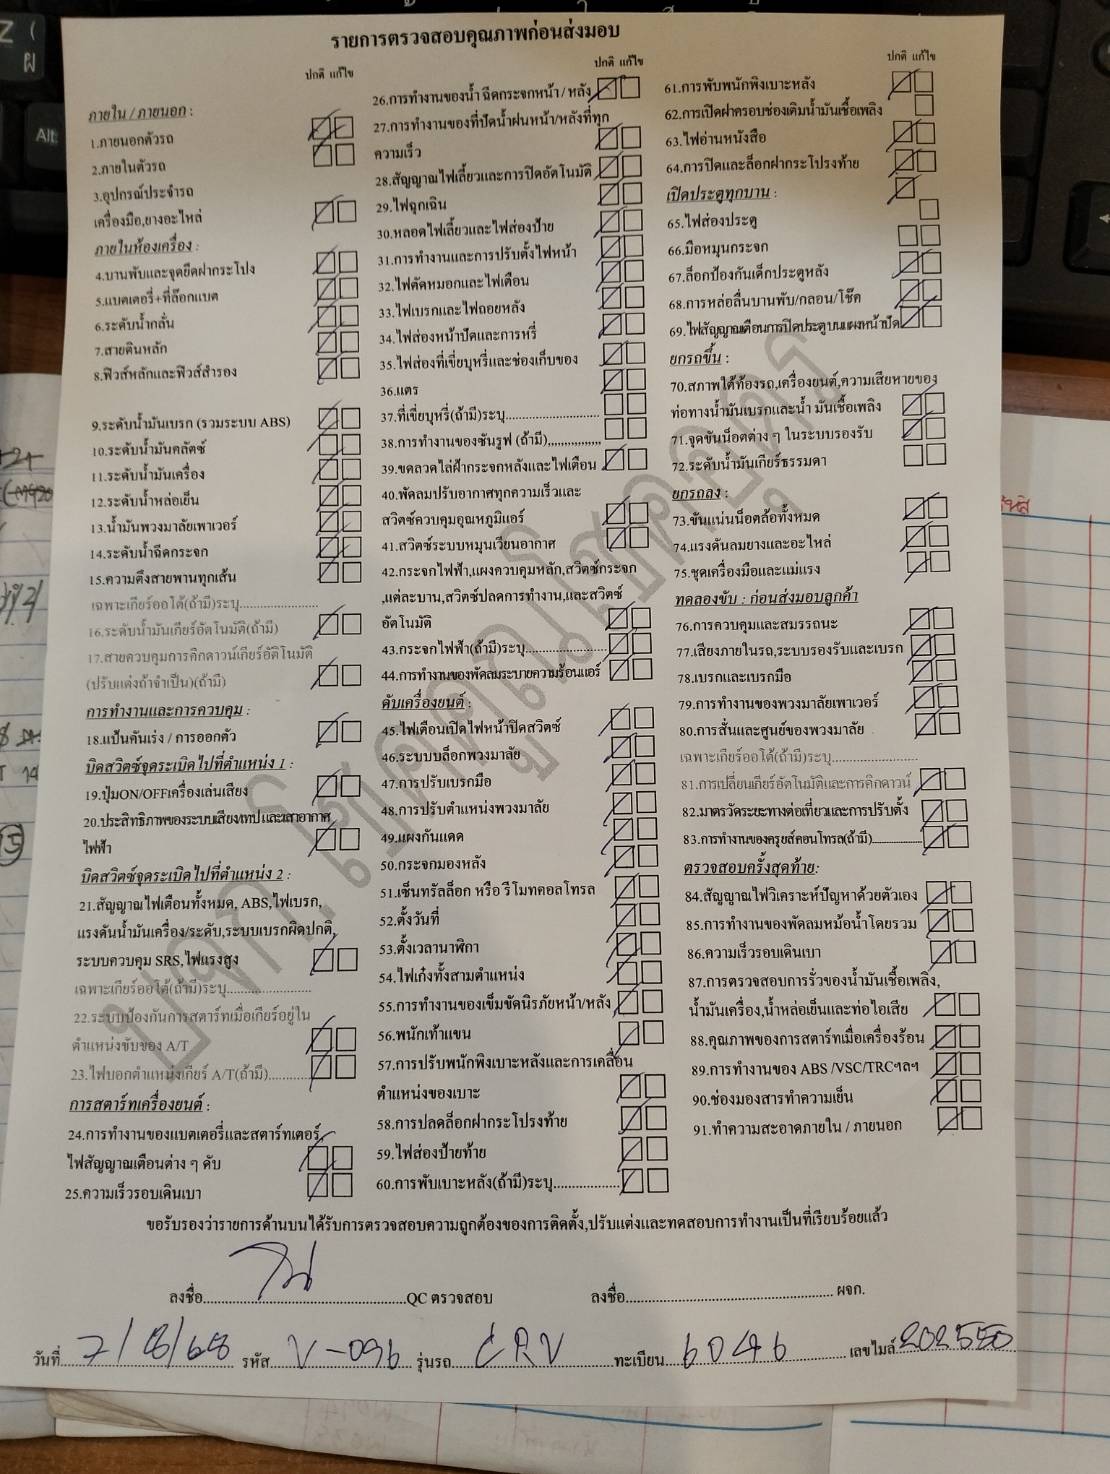 รายการตรวจสอบคุณภาพก่อนส่งมอบ
ปกติ แก้ไข
ภายใน / ภายนอก :
1.ภายนอกตัวรถ
2.ภายในตัวรถ
3.อุปกรณ์ประจำรถ
เครื่องมือ,ยางอะไหล่
ภายในห้องเครื่อง :
4.บานพับและจุดยึดฝากระโปง
5.แบตเตอรี่+ที่ล๊อกแบต
6.ระดับน้ำกลั่น
7.สายดินหลัก
8.ฟิวส์หลักและฟิวส์สำรอง
9.ระดับน้ำมันเบรก (รวมระบบ ABS)
10.ระดับน้ำมันคลัตซ์
11.ระดับน้ำมันเครื่อง
12.ระดับน้ำหล่อเย็น
13.น้ำมันพวงมาลัยเพาเวอร์
14.ระดับน้ำฉีดกระจก
15.ความตึงสายพานทุกเส้น
เฉพาะเกียร์ออโต้(ถ้ามี)ระบุ......................
16.ระดับน้ำมันเกียร์อัตโนมัติ(ถ้ามี)
17.สายควบคุมการคิกดาวน์เกียร์อัติโนมัติ
(ปรับแต่งถ้าจำเป็น)(ถ้ามี)
การทำงานและการควบคุม :
18.แป้นคันเร่ง / การออกตัว
บิดสวิตซ์จุดระเบิดไปที่ตำแหน่ง 1 :
19.ปุ่มON/OFFเครื่องเล่นเสียง
20.ประสิทธิภาพของระบบเสียงเทปและเสาอากาศ
ไฟฟ้า
บิดสวิตซ์จุดระเบิดไปที่ตำแหน่ง 2 :
21.สัญญาณไฟเตือนทั้งหมด, ABS,ไฟเบรก,
แรงดันน้ำมันเครื่อง/ระดับ,ระบบเบรกผิดปกติ,
ระบบควบคุม SRS,ไฟแรงสูง
เฉพาะเกียร์ออโต้(ถ้ามี)ระบุ......................
22.ระบบป้องกันการสตาร์ทเมื่อเกียร์อยู่ใน
ตำแหน่งขับของ A/T
23.ไฟบอกตำแหน่งเกียร์ A/T(ถ้ามี)............
การสตาร์ทเครื่องยนต์ :
24.การทำงานของแบตเตอรี่และสตาร์ทเตอร์,
ไฟสัญญาณเตือนต่าง ๆ ดับ
25.ความเร็วรอบเดินเบา
ปกติ แก้ไข
26.การทำงานของน้ำ ฉีดกระจกหน้า / หลัง
27.การทำงานของที่ปัดน้ำฝนหน้า/หลังที่ทุก
ความเร็ว
28.สัญญาณไฟเลี้ยวและการปิดอัตโนมัติ
29.ไฟฉุกเฉิน
30.หลอดไฟเลี้ยวและไฟส่องป้าย
31.การทำงานและการปรับตั้งไฟหน้า
32.ไฟตัดหมอกและไฟเตือน
33.ไฟเบรกและไฟถอยหลัง
34.ไฟส่องหน้าปัดและการหรี่
35.ไฟส่องที่เขี่ยบุหรี่และช่องเก็บของ
36.แตร
37.ที่เขี่ยบุหรี่(ถ้ามี)ระบุ............................
38.การทำงานของซันรูฟ (ถ้ามี),,,,,,,,,,,,,,,,
39.ขดลวดไล่ฝ้ากระจกหลังและไฟเตือน
40.พัดลมปรับอากาศทุกความเร็วและ
สวิตช์ควบคุมอุณหภูมิแอร์
41.สวิตช์ระบบหมุนเวียนอากาศ
42.กระจกไฟฟ้า,แผงควบคุมหลัก,สวิตช์กระจก
,แต่ละบาน,สวิตช์ปลดการทำงาน,และสวิตช์
อัตโนมัติ
43.กระจกไฟฟ้า(ถ้ามี)ระบุ........................
44.การทำงานของพัดลมระบายความร้อนแอร์
ดับเครื่องยนต์ :
45.ไฟเตือนเปิดไฟหน้าปิดสวิตช์
46.ระบบบล็อกพวงมาลัย
47.การปรับเบรกมือ
48.การปรับตำแหน่งพวงมาลัย
49.แผงกันแดด
50.กระจกมองหลัง
51.เซ็นทรัลล็อก หรือ รีโมทคอลโทรล
52.ตั้งวันที่
53.ตั้งเวลานาฬิกา
54.ไฟเก๋งทั้งสามตำแหน่ง
55.การทำงานของเข็มขัดนิรภัยหน้า/หลัง
56.พนักเท้าแขน
57.การปรับพนักพิงเบาะหลังและการเคลื่อน
ตำแหน่งของเบาะ
58.การปลดล็อกฝากระโปรงท้าย
59.ไฟส่องป้ายท้าย
60.การพับเบาะหลัง(ถ้ามี)ระบุ..................
ปกติ แก้ไข
61.การพับพนักพิงเบาะหลัง
62.การเปิดฝาครอบช่องเติมน้ำมันเชื้อเพลิง
63.ไฟอ่านหนังสือ
64.การปิดและล็อกฝากระโปรงท้าย
เปิดประตูทุกบาน :
65.ไฟส่องประตู
66.มือหมุนกระจก
67.ล็อกป้องกันเด็กประตูหลัง
68.การหล่อลื่นบานพับ/กลอน/โช๊ค
69.ไฟสัญญาณเตือนการปิดประตูบนแผงหน้าปัด
ยกรถขึ้น :
70.สภาพใต้ท้องรถ,เครื่องยนต์,ความเสียหายของ
ท่อทางน้ำมันเบรกและน้ำ มันเชื้อเพลิง
71.จุดขันน็อตต่าง ๆ ในระบบรองรับ
72.ระดับน้ำมันเกียร์ธรรมดา
ยกรถลง :
73.ขันแน่นน็อตล้อทั้งหมด
74.แรงดันลมยางและอะไหล่
75.ชุดเครื่องมือและแม่แรง
ทดลองขับ : ก่อนส่งมอบลูกค้า
76.การควบคุมและสมรรถนะ
77.เสียงภายในรถ,ระบบรองรับและเบรก
78.เบรกและเบรกมือ
79.การทำงานของพวงมาลัยเพาเวอร์
80.การสั่นและศูนย์ของพวงมาลัย
เฉพาะเกียร์ออโต้(ถ้ามี)ระบุ......................
81.การเปลี่ยนเกียร์อัตโนมัติและการคิกดาวน์
82.มาตรวัดระยะทางต่อเที่ยวและการปรับตั้ง
83.การทำงานของครุยส์คอนโทรล(ถ้ามี)..............
ตรวจสอบครั้งสุดท้าย:
84.สัญญาณไฟวิเคราะห์ปัญหาด้วยตัวเอง
85.การทำงานของพัดลมหม้อน้ำโดยรวม
86.ความเร็วรอบเดินเบา
87.การตรวจสอบการรั่วของน้ำมันเชื้อเพลิง,
น้ำมันเครื่อง,น้ำหล่อเย็นและท่อไอเสีย
88.คุณภาพของการสตาร์ทเมื่อเครื่องร้อน
89.การทำงานของ ABS /VSC/TRCฯลฯ
90.ช่องมองสารทำความเย็น
91.ทำความสะอาดภายใน / ภายนอก
ขอรับรองว่ารายการด้านบนได้รับการตรวจสอบความถูกต้องของการติดตั้ง,ปรับแต่งและทดสอบการทำงานเป็นที่เรียบร้อยแล้ว
ลงชื่อ..................QC ตรวจสอบ ลงชื่อ.................. ผจก.
วันที่ 7/8/68 รหัส V-096 รุ่นรถ CRV ทะเบียน 6046 เลขไมล์ 202550